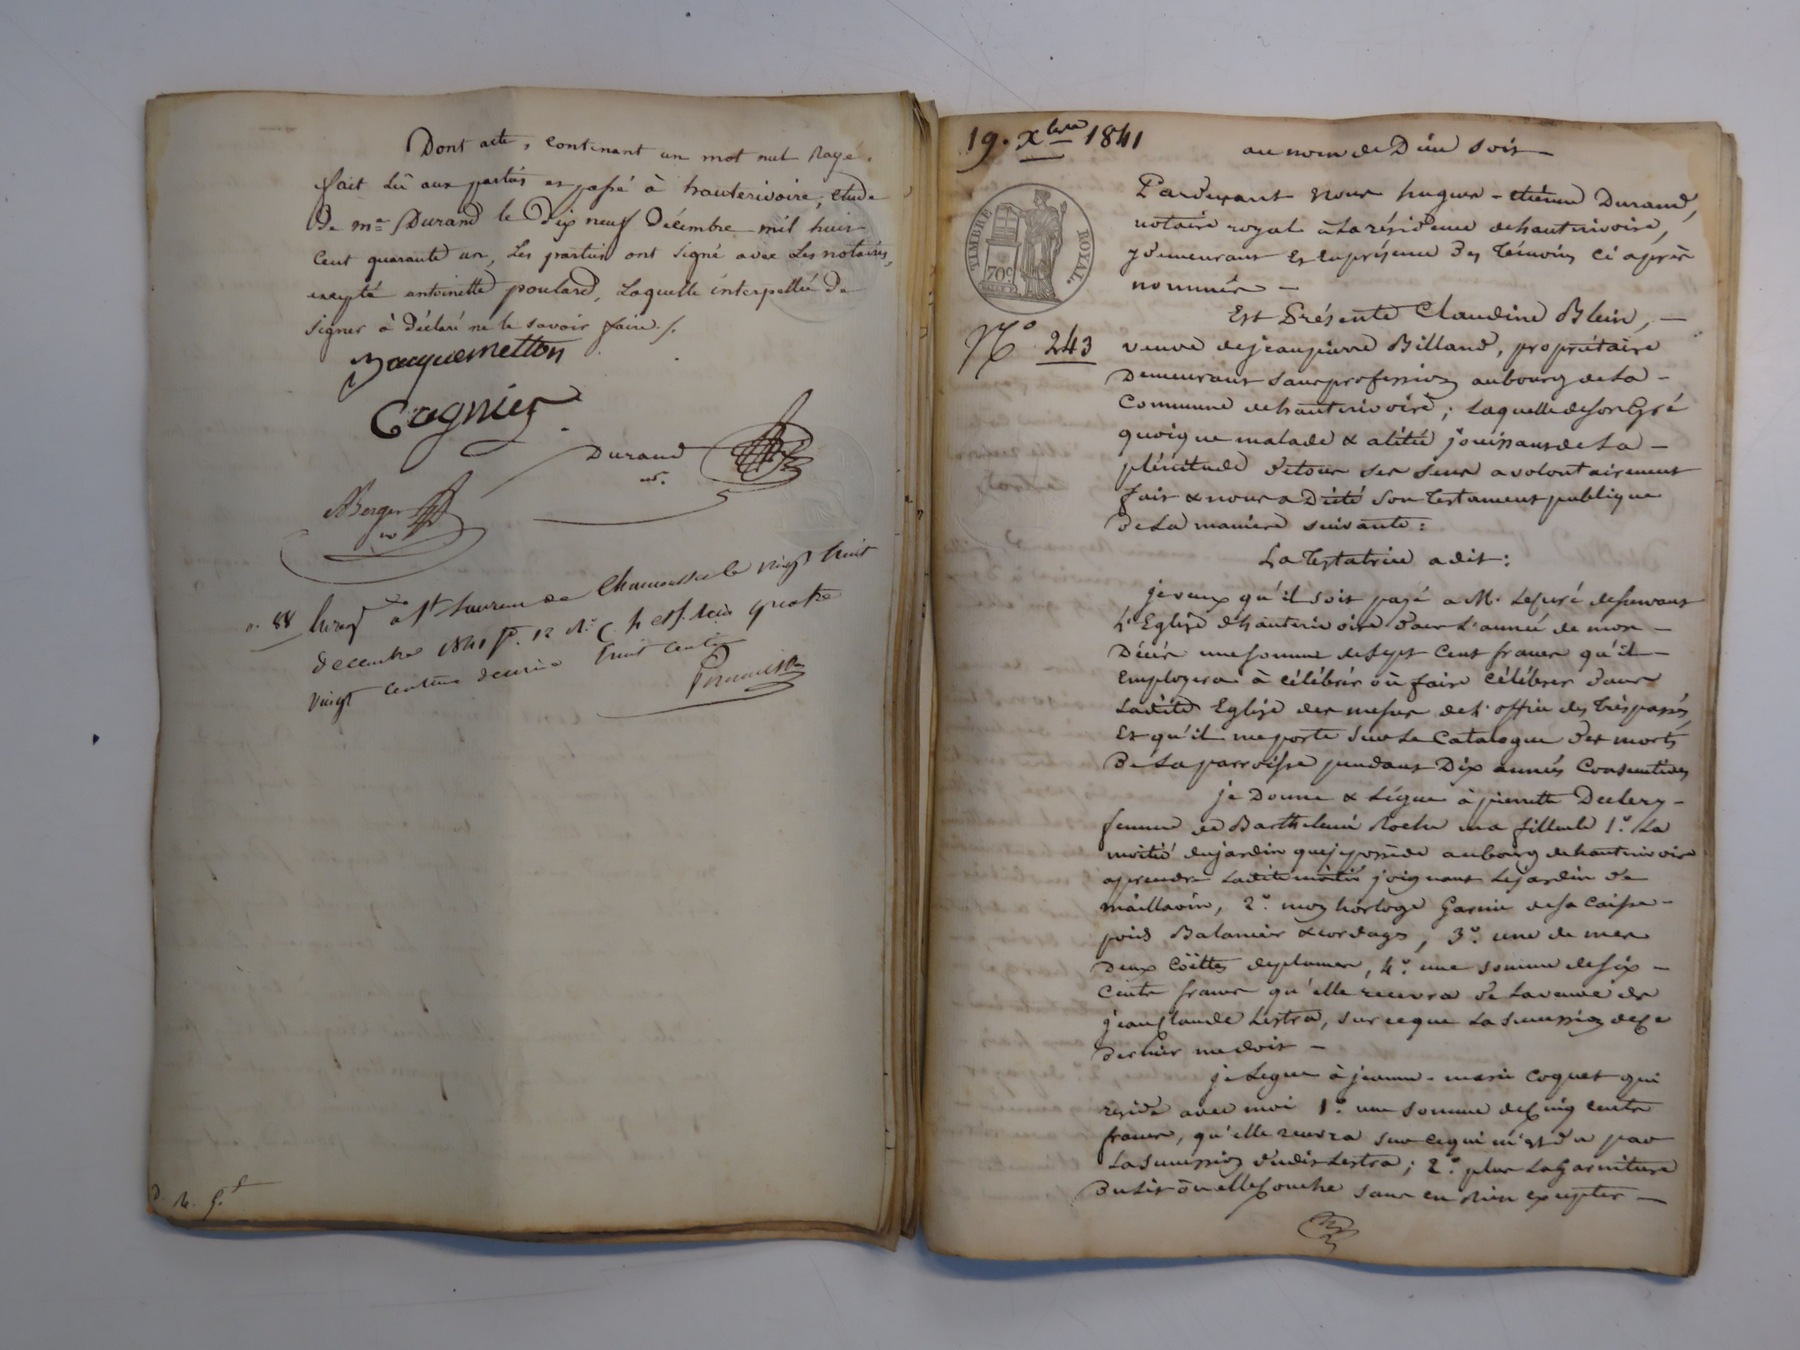 Dont acte, contenant un mot nul rayé.
fait Lû aux parties et passé à hauterivoire, etude
De me Durand le Dix neuf Décembre mil huit
Cent quarante un, Les parties ont signé avec Les notaires,
excepté antoinette poulard, Laquelle interpellée de
signer à déclaré ne le savoir faire ./.
Jacquemetton
Cognier
Durand
nre.
Berger
88 Enregé à St Laurent de Chamousset le vingt huit
decembre 1841 fo. 12 Ro. C. 4 et f. recu quatre
vingt centimes decime huit centimes
D. N. 5. f
19. Xbre 1841
au nom de Dieu soit
TIMBRE ROYAL.
70c
Pardevant Nous hugues-etienne Durand,
notaire royal à La résidence de hauterivoire,
y demeurant Et En présence Des Témoins Ci après
nommés
No 243
Est Présente Claudine Blein,
veuve de jeanpierre Billand, propriétaire
Demeurant sans profession au bourg de La
Commune de hauterivoire; Laquelle de son Gré
quoique malade & alitée jouissant de La
plénitude de tous ses sens a volontairement
fait & nous a Dicté son testament publique
De La manière suivante:
La Testatrice a dit:
je veux qu'il soit payé a M. Le Curé desservant
L'Eglise d'hauterivoire dans L'année de mon
Décès une somme de Sept Cent francs qu'il
Employera à célébrer où faire célébrer dans
Ladite Eglise des messes de L'office des trépassés,
Et qu'il me porte sur Le Catalogue des morts
De La parroisse pendant Dix années Consecutives
je Donne & Légue à pierrette Declery
femme de Barthelemi Roche ma filleule 1o. La
moitié du jardin que je possède au bourg de hauterivoire
a prendre Ladite moitié joignant Le jardin de
maillavin, 2o. mon horloge Garnie de sa Caisse
poids Balancier & cordages, 3o. une de mes
Deux Coëttes de plumes, 4o. une somme de six
Cents francs qu'elle recevra de La veuve de
jean Claude Lestra, sur ce que La succession de Ce
dernier me doit
je Legue à jeanne-marie Coquet qui
reside avec moi 1o. une somme de Cinq cents
francs, qu'elle recevra sur ce qui m'est du par
La succession dudit Lestra; 2o. plus La Garniture
Du Lit où elle Couche sans en Rien excepter